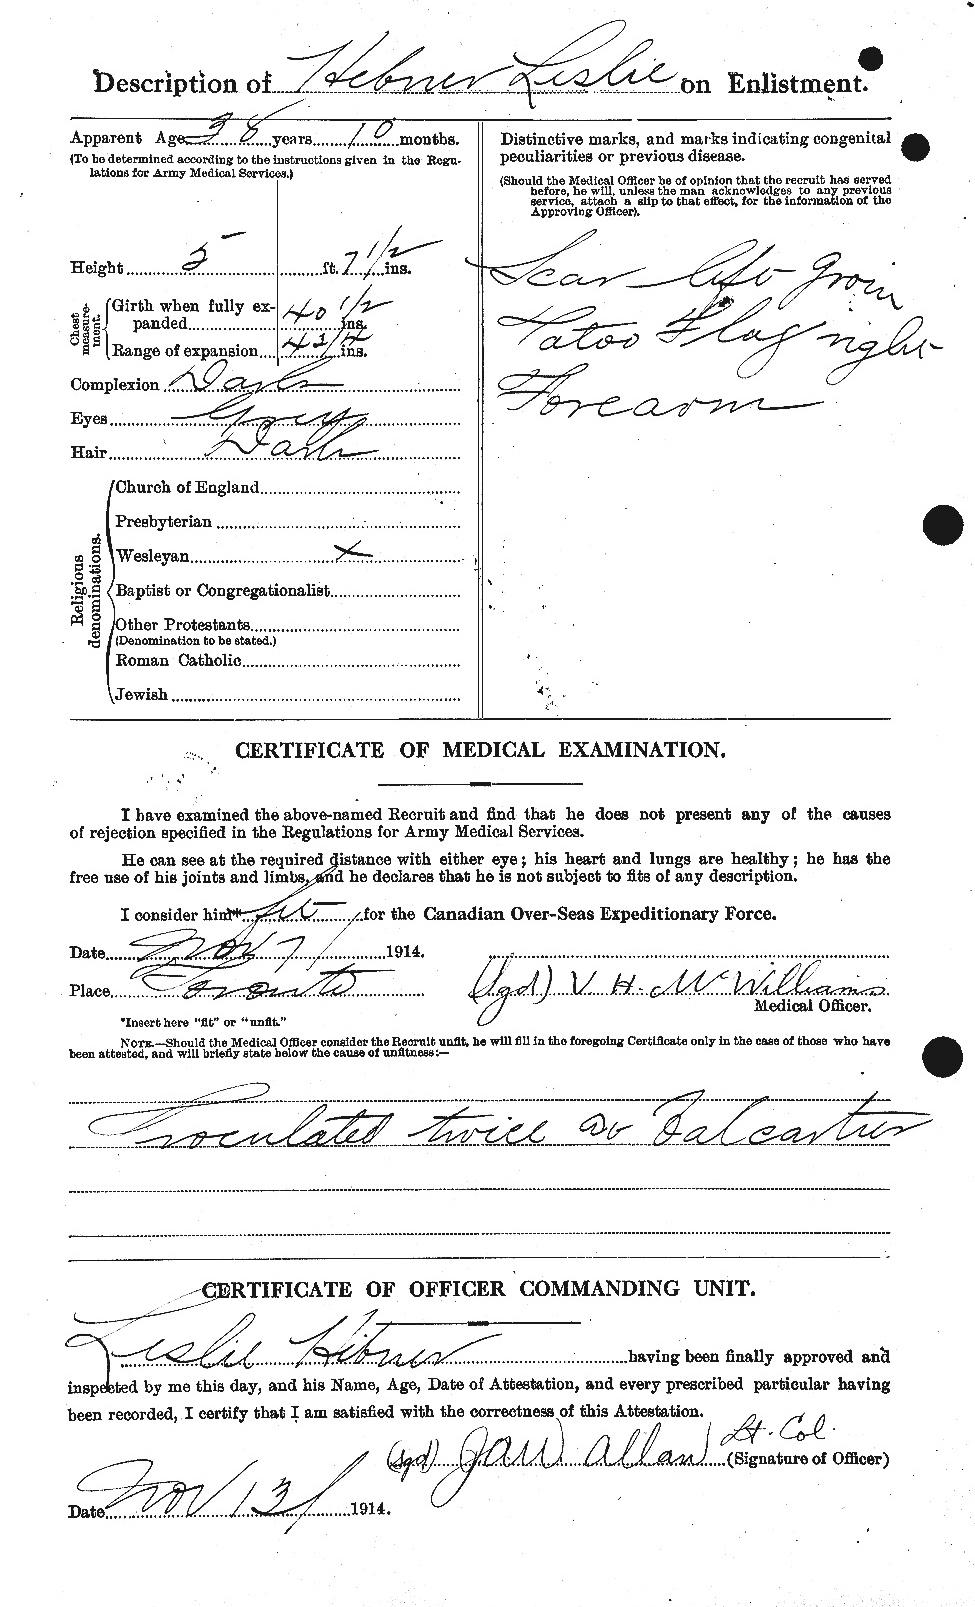 Description of Hebner Leslie on Enlistment.
Apparent Age 38 years 10 months.
(To be determined according to the instructions given in the Regu-
lations for Army Medical Services.)
Height 5 ft. 7 1/2 ins.
Chest measure-
ment.
Girth when fully ex-
panded 40 1/2 ins.
Range of expansion ins.
Complexion Dark
Eyes Grey
Hair Dark
Religious
denominations.
Church of England
Presbyterian
Wesleyan x
Baptist or Congregationalist
Other Protestants
(Denomination to be stated.)
Roman Catholic
Jewish
Distinctive marks, and marks indicating congenital
peculiarities or previous disease.
(Should the Medical Officer be of opinion that the recruit has served
before, he will, unless the man acknowledges to any previous
service, attach a slip to that effect, for the information of the
Approving Officer).
Scar left groin
Tatoo Flag right
Forearm
CERTIFICATE OF MEDICAL EXAMINATION.
I have examined the above-named Recruit and find that he does not present any of the causes
of rejection specified in the Regulations for Army Medical Services.
He can see at the required distance with either eye; his heart and lungs are healthy; he has the
free use of his joints and limbs, and he declares that he is not subject to fits of any description.
I consider him* fit for the Canadian Over-Seas Expeditionary Force.
Date Nov 7 1914.
Place Toronto
(sgd) V H. McWilliams
Medical Officer.
*Insert here "fit" or "unfit."
NOTE.—Should the Medical Officer consider the Recruit unfit, he will fill in the foregoing Certificate only in the case of those who have
been attested, and will briefly state below the cause of unfitness:—
Inoculated twice Valcartier
CERTIFICATE OF OFFICER COMMANDING UNIT.
Leslie Hebner having been finally approved and
inspected by me this day, and his Name, Age, Date of Attestation, and every prescribed particular having
been recorded, I certify that I am satisfied with the correctness of this Attestation.
(sgd) Allan Lt. Col.
(Signature of Officer)
Date Nov 13 1914.